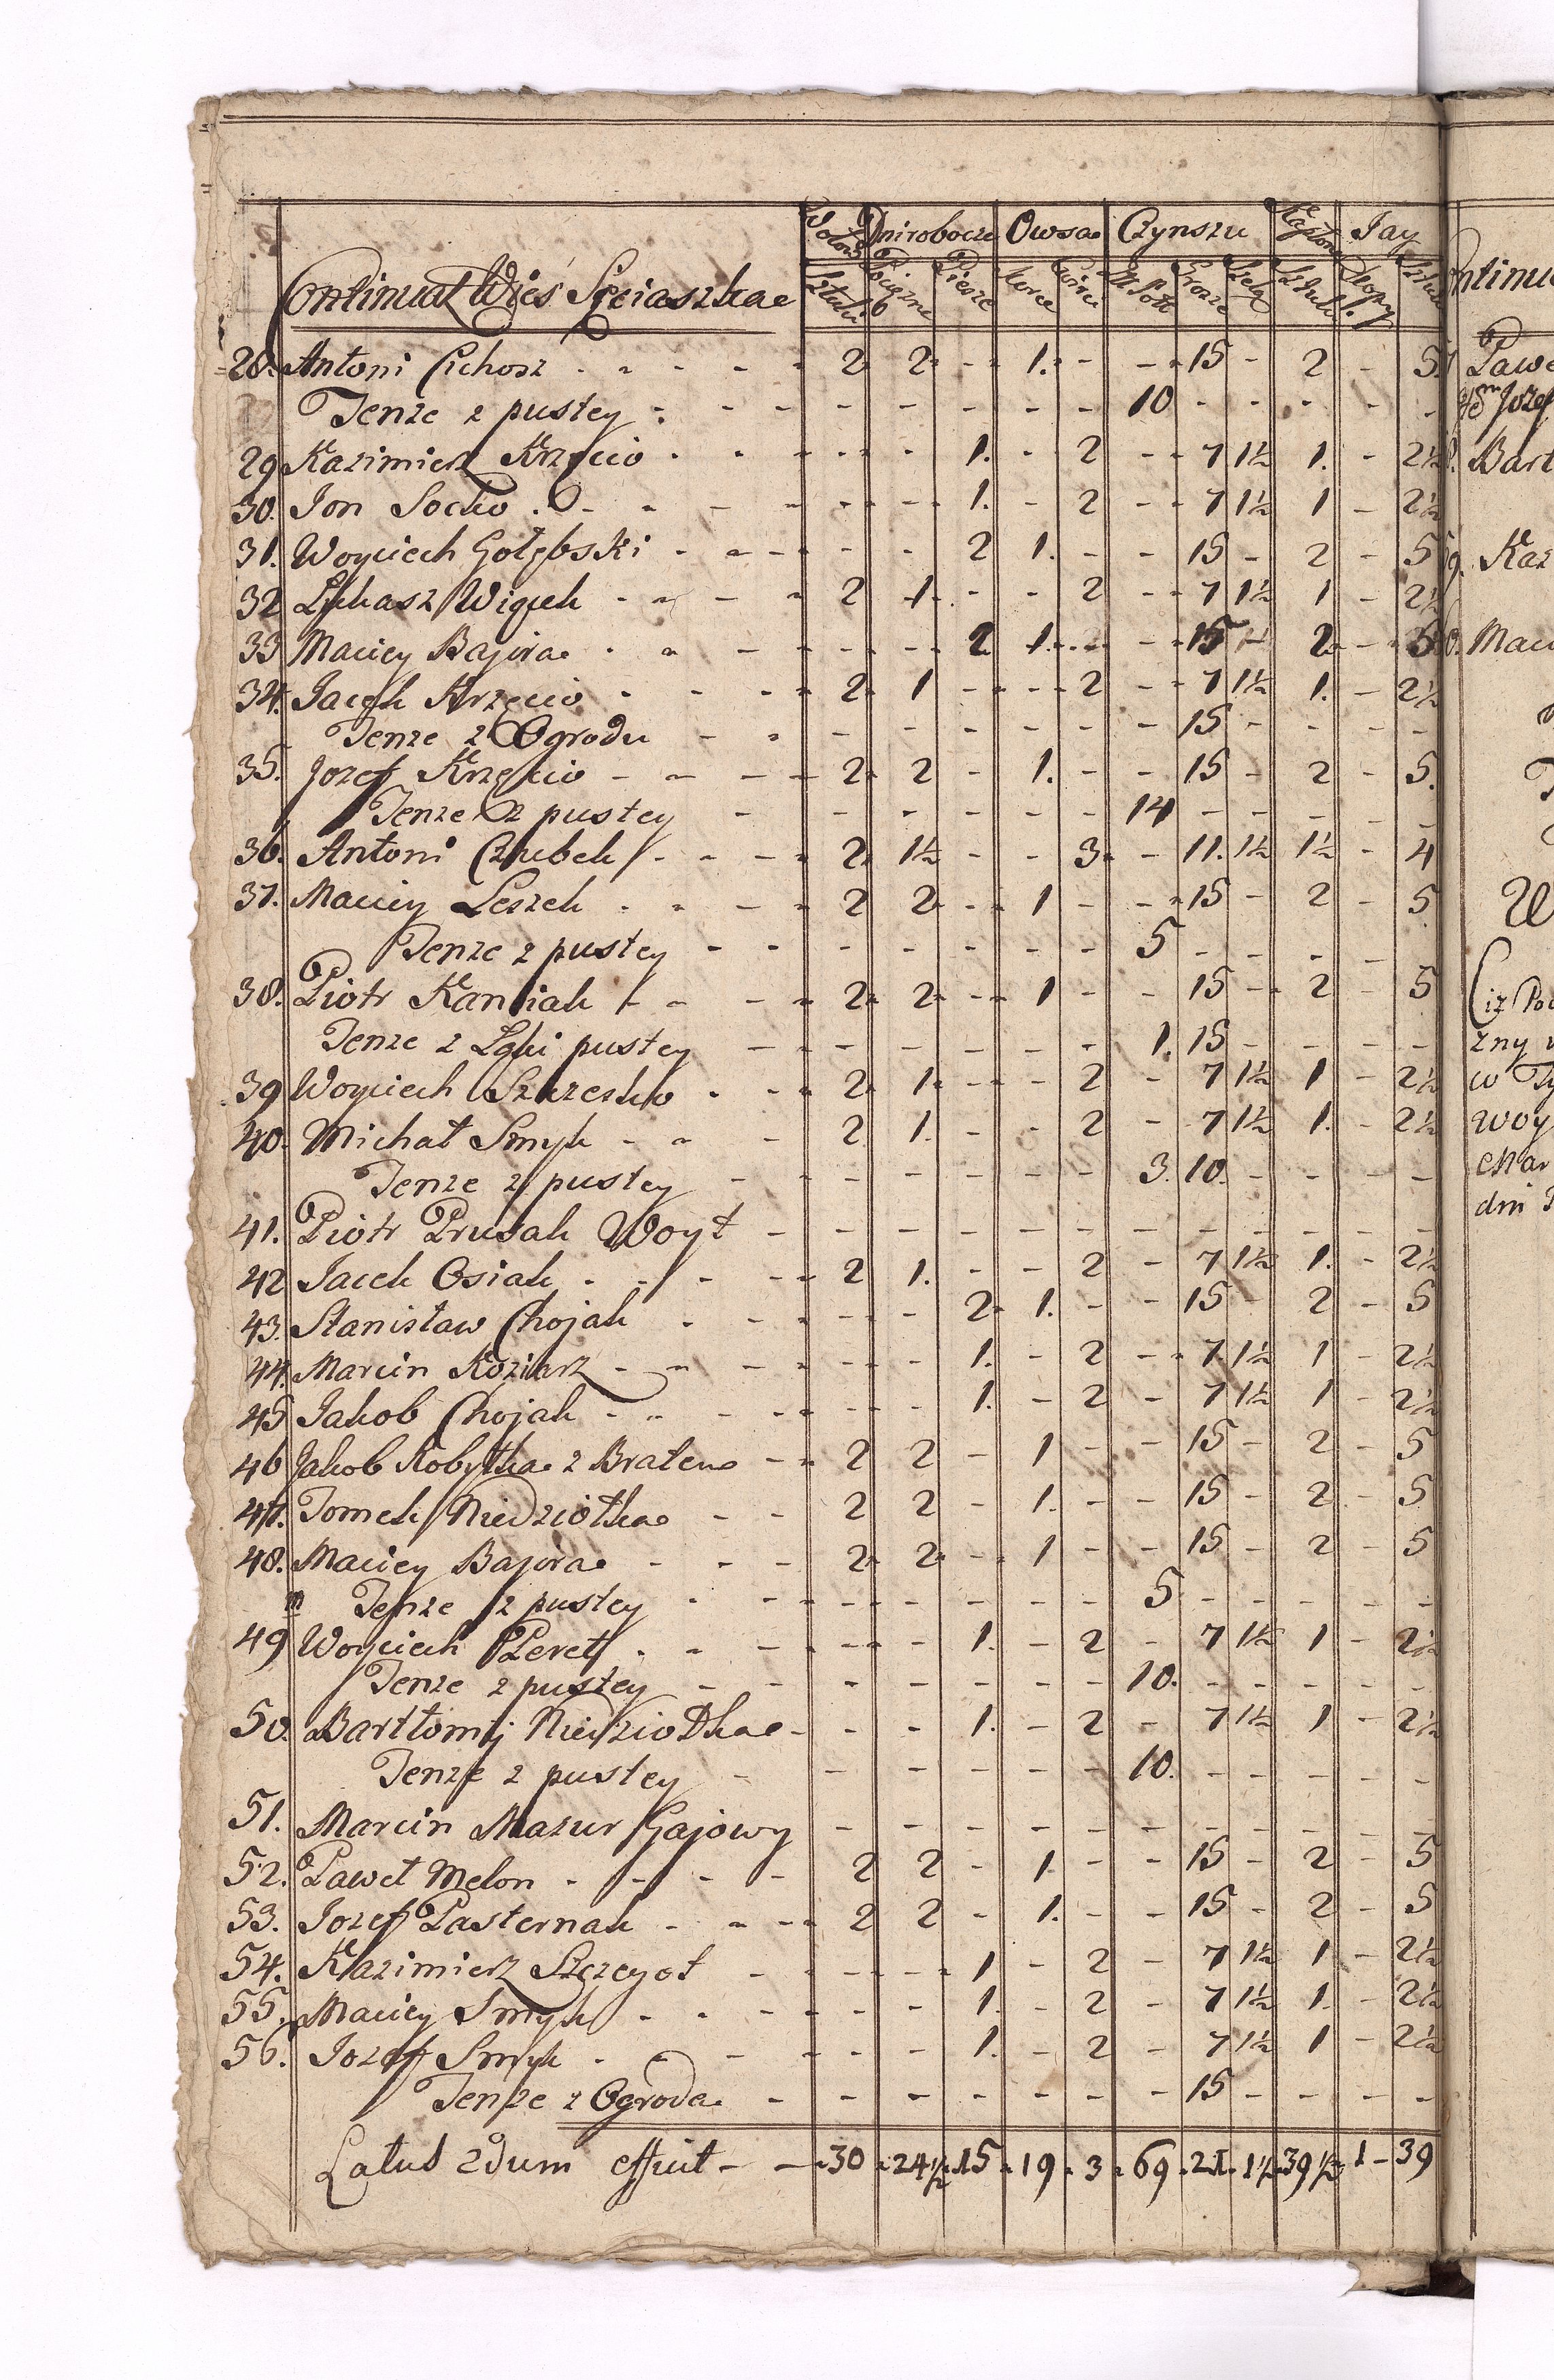 Wołow Dni robocze Owsa Czynszu Kapłon Jay
Continuat Wieś Szeiaszka Sztuki Ciągłe Piesze korce Cwierci Złote Grosze Szelą Sztuk kopy Sztuk
28. Antoni Cichosz - - - - 2 2 - 1. - - 15 - 2 - 5.
Tenże z pustey - - - - - - - - 10 - - - - -
29 Kazimierz Krzęcio - - - - 1. - 2 - 7 1½ 1. - 2½
30. Jon Socko - - - - - 1. - 2 - 7 1½ 1 - 2½
31. Woyciech Gołębski - - - - - 2 1. - - 15 - 2 - 5
32 Łukasz Wiącek - - - - 2 1. - - 2 - 7 1½ 1 - 2½
33 Maciey Bajora - - - - - 2 1. - - 15 - 2 - 5
34. Jacek Krzęcio - - - - 2 1 - - 2 - 7 1½ 1. - 2½
Tenże z Ogrodu - - - - - - - - - 15 - - - -
35. Jozef Krzęcio - - - - 2 2 - 1. - - 15 - 2 - 5.
Tenże z pustey - - - - - - - 14 - - - - -
36. Antoni Czubek - - - - 2 1½ - - 3 - 11. 1½ 1½ - 4
37. Maciey Leszek - - - - 2 2 - 1 - - 15 - 2 - 5
Tenże z pustey - - - - - - - - 5 - - - - -
38. Piotr Kaniak - - - - 2 2 - 1 - - 15 - 2 - 5
Tenże z Łąki pustey - - - - - - 1. 15 - - - -
39 Woyciech Szczesko - - 2 1 - - 2 - 7 1½ 1 - 2½
40. Michał Smyk - - - 2 1. - - 2 - 7 1½ 1. - 2½
Tenże z pustey - - - - - - - 3. 10. - - - -
41. Piotr Prusak Woyt - - - - - - - - - - - -
42 Jacek Osiak - - - - 2 1. - - 2 - 7 1½ 1. - 2½
43. Stanisław Chojak - - - - 2 1. - - 15 - 2 - 5
44. Marcin Koziarz - - - - - 1. - 2 - 7 1½ 1 - 2½
45 Jakob Chojak - - - - - 1. - 2 - 7 1½ 1 - 2½
46 Jakob Kobyłka z Bratem - - 2 2 - 1 - - 15 - 2 - 5
47. Tomek Niedziołka - - 2 2 - 1. - - 15 - 2 - 5
48. Maciey Bajora - - - 2 2 - 1 - - 15 - 2 - 5
Tenże z pustey - - - - - - - - 5 - - - - -
49 Woyciech Peret - - - - - 1. - 2 - 7 1½ 1 - 2½
Tenże z pustey - - - - - - - 10. - - - - -
50. Bartłomiy Niedziołka - - - 1. - 2 - 7 1½ 1 - 2½
Tenże z pustey - - - - - - 10. - - - - -
51. Marcin Mazur Gajowy - - - - - - - - - - -
52. Paweł Melon - - - - 2 2 - 1. - - 15 - 2 - 5
53. Jozef Pasternak - - - 2 2 - 1. - - 15 - 2 - 5
54. Kazimierz Szczygeł - - - - 1 - 2 - 7 1½ 1 - 2½
55. Maciey Smyk - - - - - 1. - 2 - 7 1½ 1. - 2½
56. Jozef Smyk - - - - - 1. - 2 - 7 1½ 1 - 2½
Tenże z Ogroda - - - - - - - 15 - - - -
Latus 2dum efficit - - 30 24½ 15 19 3 69 21 1½ 39½ 1 - 39